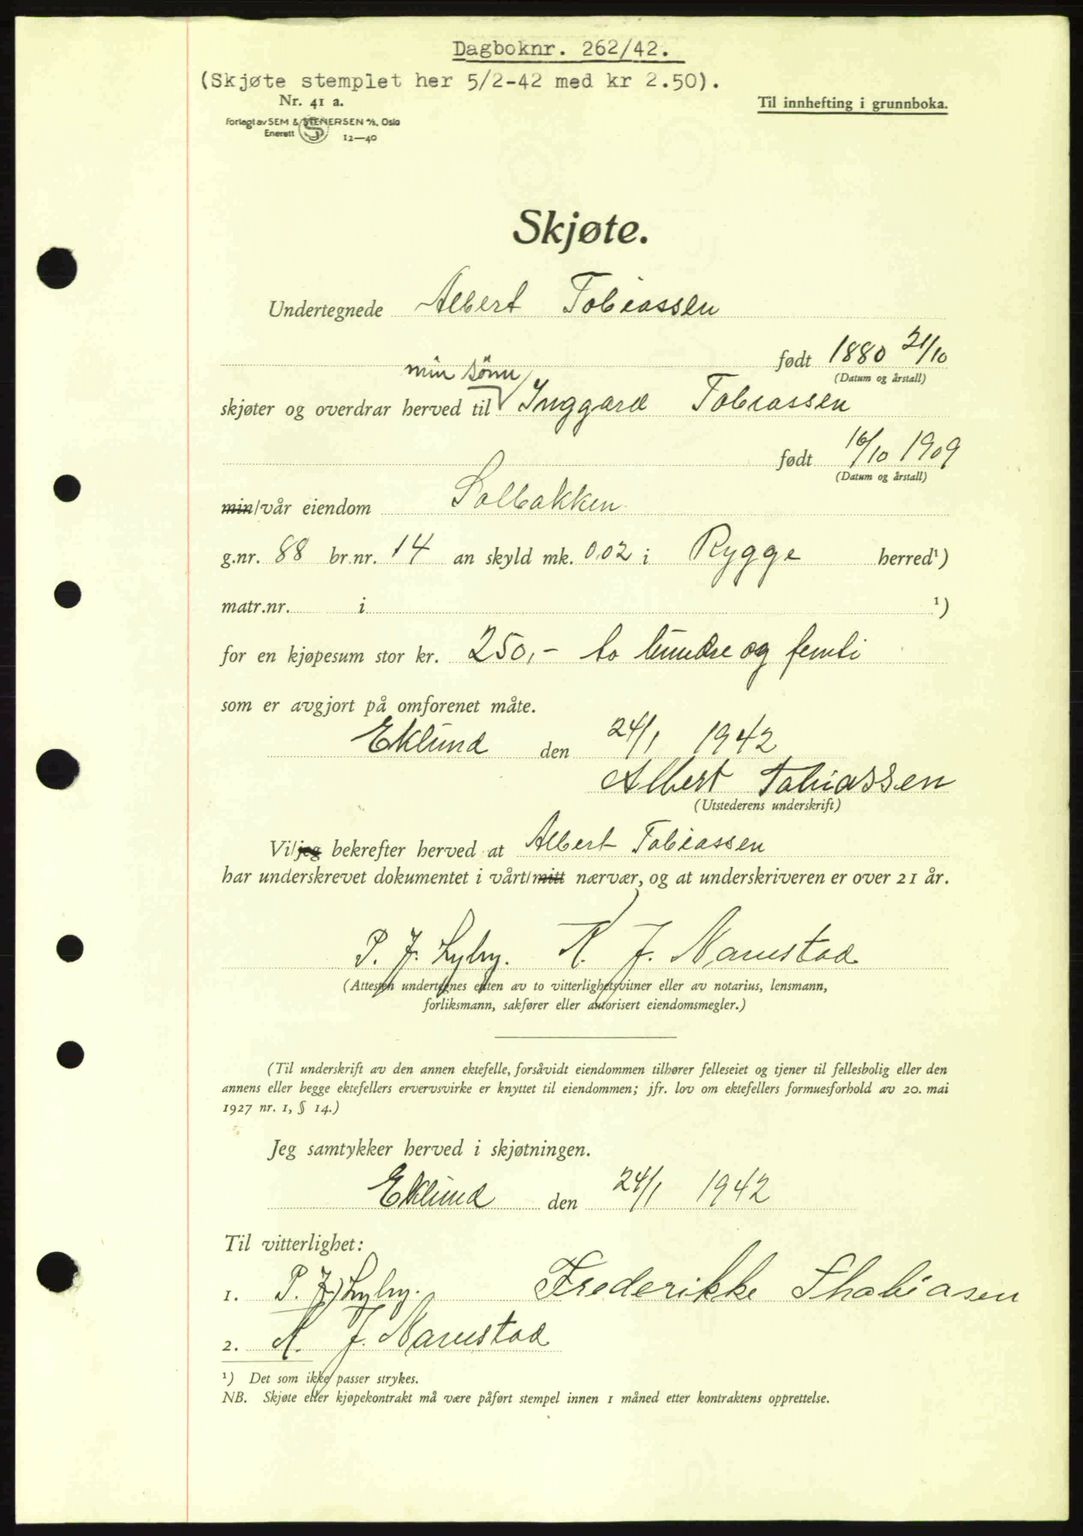 Dagboknr. 262/42.
(Skjøte stemplet her 5/2-42 med kr 2.50).
Nr. 41 a.
Til innhefting i grunnboka.
Forlagt av SEM & STENERSEN A/S, Oslo
Enerett 12—40
Skjøte.
Undertegnede Albert Tobiassen
født 1880 21/10
(Datum og årstall)
min sønn
skjøter og overdrar herved til Inggard Tobiassen
født 16/10 1909
(Datum og årstall)
min/vår eiendom Solbakken
g.nr. 88 br.nr. 14 an skyld mk. 0,02 i Rygge herred¹)
matr.nr. i ¹)
for en kjøpesum stor kr. 250,- to hundre og femti
som er avgjort på omforenet måte.
Eklund den 24/1 1942
Albert Tobiassen
(Utstederens underskrift)
Vi/jeg bekrefter herved at Albert Tobiassen
har underskrevet dokumentet i vårt/mitt nærvær, og at underskriveren er over 21 år.
P. J. Lyby. K. J. Navestad
(Attesten undertegnes enten av to vitterlighetsvitner eller av notarius, lensmann,
forliksmann, sakfører eller autorisert eiendomsmegler.)
(Til underskrift av den annen ektefelle, forsåvidt eiendommen tilhører felleseiet og tjener til fellesbolig eller den
annens eller begge ektefellers ervervsvirke er knyttet til eiendommen; jfr. lov om ektefellers formuesforhold av 20. mai
1927 nr. 1, § 14.)
Jeg samtykker herved i skjøtningen.
Eklund den 24/1 1942
Til vitterlighet:
1. P. J. Lyby. Frederikke Thobiasen
2. K. J. Navestad
¹) Det som ikke passer strykes.
NB. Skjøte eller kjøpekontrakt må være påført stempel innen 1 måned etter kontraktens opprettelse.